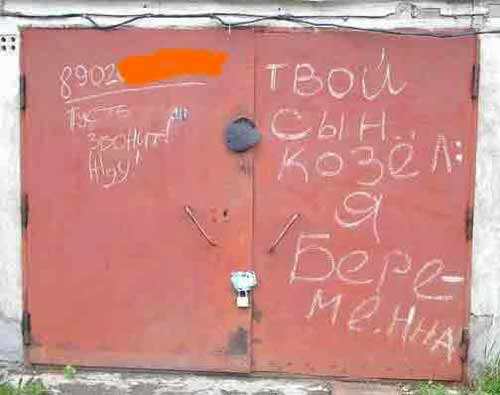 8902
Пусть
звонит!!!
Жду!
ТВОЙ
СЫН..
КОЗЁЛ:
Я
Бере-
менна